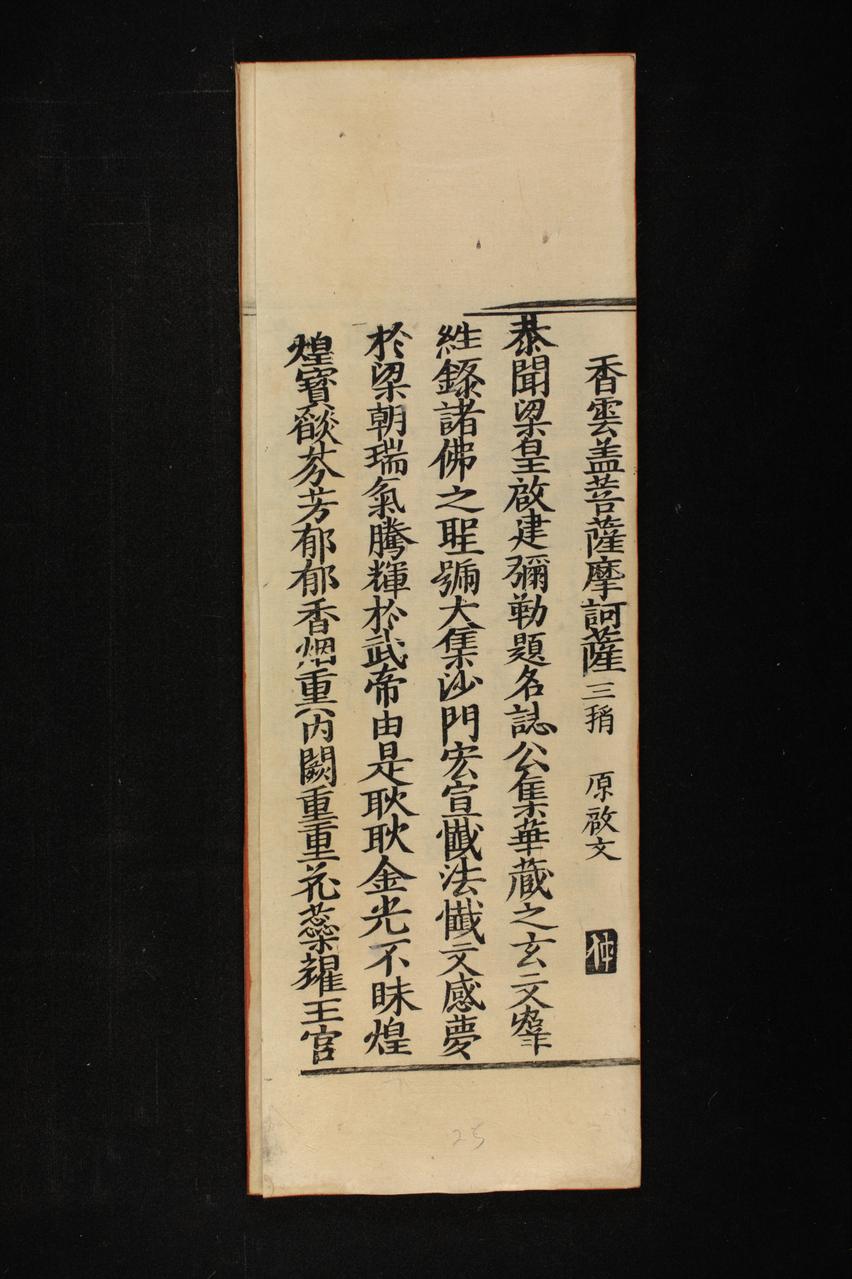 香雲盖菩薩摩訶薩 三稱 原啟文 仲
恭聞梁皇啟建彌勒題名誌公集華藏之玄文羣
經錄諸佛之聖號大集沙門宏宣懺法懺文感夢
於梁朝瑞氣騰輝於武帝由是耿耿金光不昧煌
煌寶燄芬芳郁郁香烟重內闕重重花蕊耀王宮
25